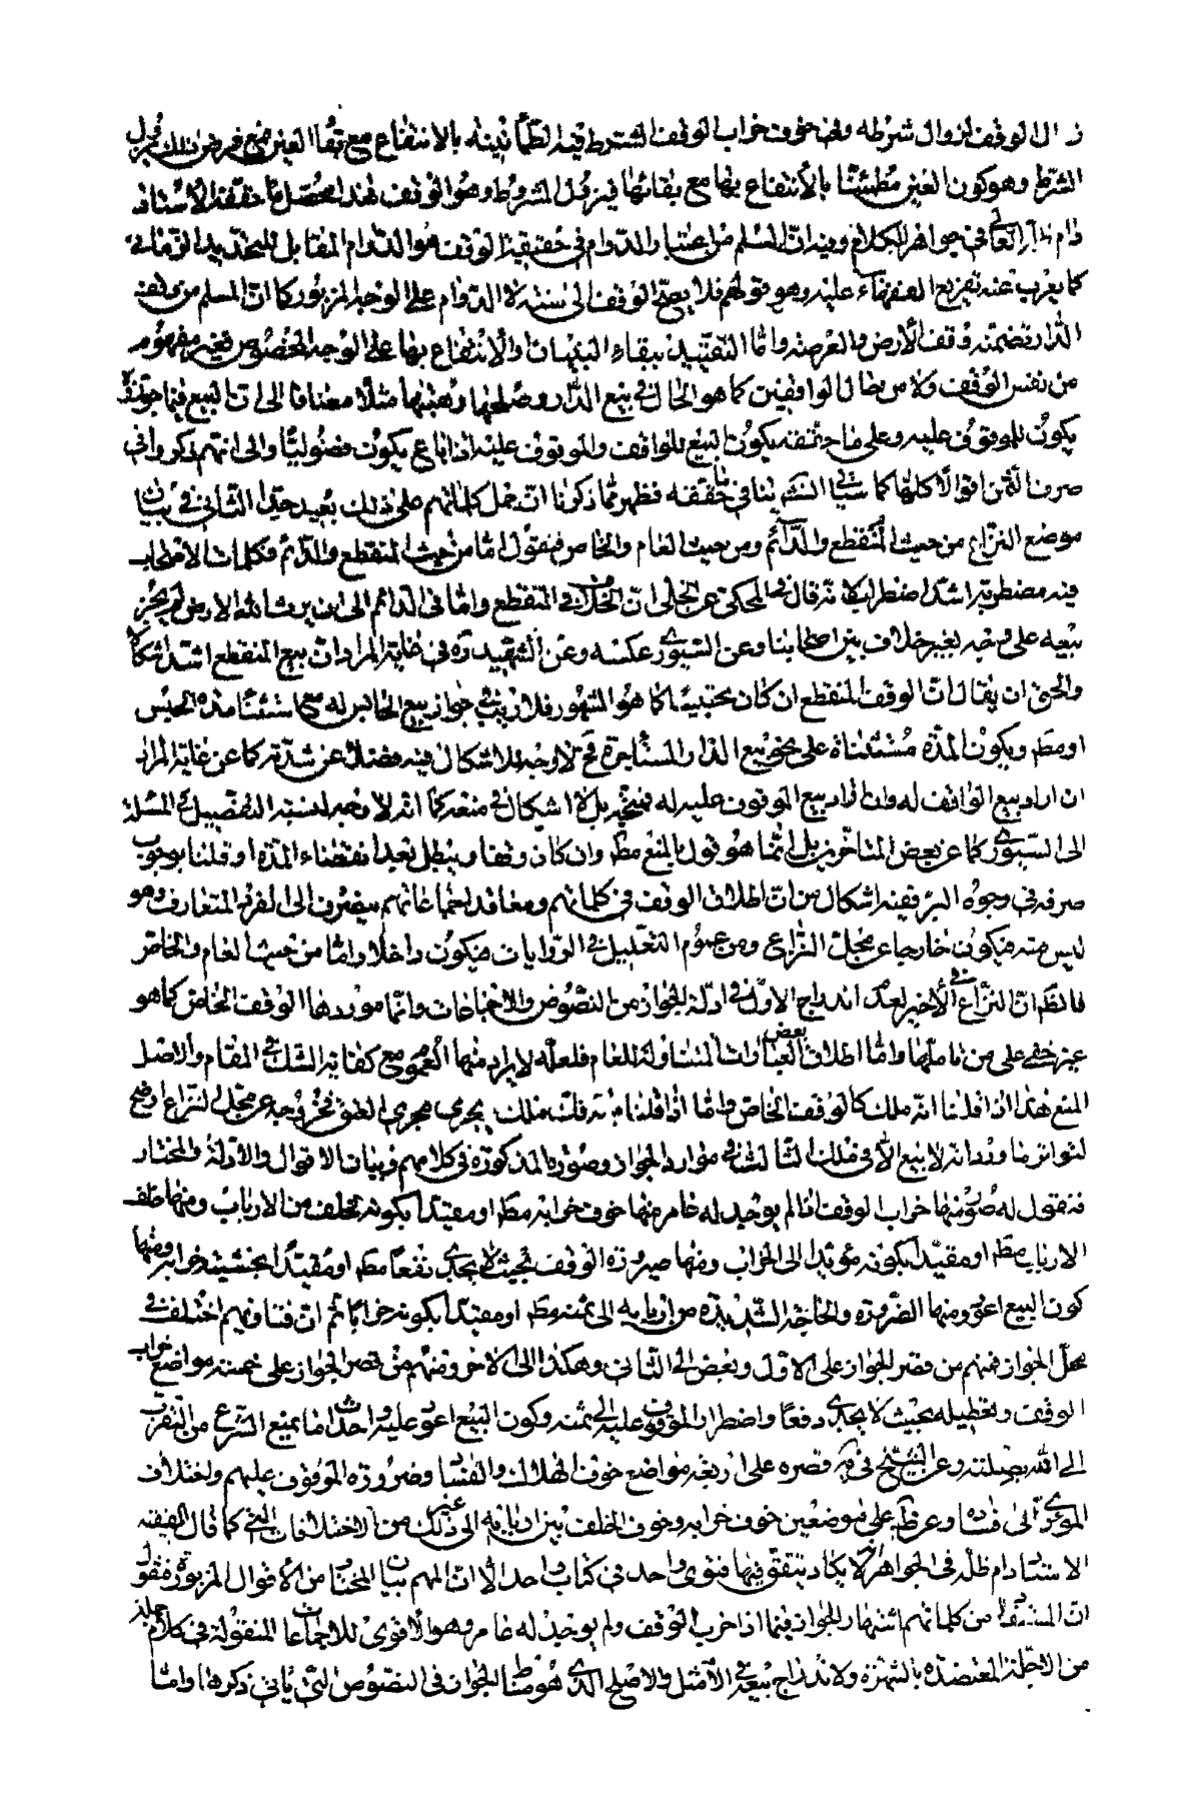 زال الوقف لزوال شرطه وفى خوف خراب الوقف اشترط فيه الطمأنينة بالانتفاع مع بقاء العين فمع فرض ذلك يزول
الشرط وهو كون العين مطمئنا بالانتفاع بها مع بقائها فيزول المشروط وهو الوقف هذا محصل ما حققه الاستاد
دام ظله العالى فى جواهر الكلام وفيه ان المسلم من اعتبار الدوام فى حقيقة الوقف هو الدوام المقابل للتحديد الزمانى
كما يعرب عنه تفريع الفقهاء عليه وهو قولهم فلا يصح الوقف الى سنة لا الدوام على الوجه المزبور كما ان المسلم من وقف
الدار تضمنه وقف الارض والعرصة واما التقييد ببقاء البنيان والانتفاع بها على الوجه المخصوص فغير مفهوم
من نفس الوقف ولا من حال الواقفين كما هو الحال فى بيع الدار وصلحها وهبتها مثلا مضافا الى ان البيع فيما جوزوه
يكون للموقوف عليه وعلى ما حققه يكون البيع للواقف والموقوف عليه اذا باع يكون فضوليا والى انهم ذكروا فى
صرف الثمن اقوالا كلها كما سيأتى ينافى ما حققه فظهر مما ذكرنا ان حمل كلماتهم على ذلك بعيد جدا الثانى فى بيان
موضع النزاع من حيث المنقطع والدائم ومن حيث العام والخاص فنقول اما من حيث المنقطع والدائم فكلمات الاصحاب
فيه مضطربة اشد اضطراب قال فى المحكى عن الحلى ان الخلاف فى المنقطع واما فى الدائم الى ان يرث الله الارض لم يجز
بيعه على وجه بغير خلاف بين اصحابنا وعن السيورى عكسه وعن الشهيد ره فى غاية المراد ان بيع المنقطع اشد اشكالا
والحق ان يقال ان الوقف المنقطع ان كان حبسا كما هو المشهور فلا ريب فى جواز بيع الحابس له مع استثناء مدة الحبس
او مط ويكون المدة مستثناة على نحو بيع الدار المستأجرة فح لا وجه للاشكال فيه فضلا عن شدته كما عن غاية المراد
ان اراد بيع الواقف له وان اراد بيع الموقوف عليه له فيتجه بل لا اشكال فى منعه كما انه لا وجه لنسبة التفصيل فى المسئلة
الى السيورى كما عن بعض المتأخرين بل انما هو قول بالمنع مط وان كان وقفا ويبطل بعد انقضاء المدة او قلنا بوجوب
صرفه فى وجوه البر ففيه اشكال من ان اطلاق الوقف فى كلماتهم ومعاقد اجماعاتهم ينصرف الى الفرد المتعارف وهو
ليس منه فيكون خارجا عن محل النزاع ومن عموم التعليل فى الروايات فيكون داخلا واما من حيث العام والخاص
فالظ ان النزاع فى الاخير لعدم اندراج الاول فى ادلة الجواز من النصوص والاجماعات وانما موردها الوقف الخاص كما هو
غير خفى على من تأملها واما اطلاق بعض العبارات المتناولة للعام فلعله لا يراد منها العموم مع كفاية الشك فى المقام والاصل
المنع هذا اذا قلنا انه ملك كالوقف الخاص واما اذا قلنا بانه فك ملك يجرى مجرى العتق فخروجه عن محل النزاع اوضح
لتواتر ما ورد انه لا بيع الا فى ملك الثالث فى موارد الجواز وصوره المذكورة فى كلامهم وبيان الاقوال والادلة والمختار
فنقول له صور منها خراب الوقف اذا لم يوجد له عامر ومنها خوف خرابه مط او مقيدا بكونه لخلف من الارباب ومنها خلف
الارباب مط او مقيدا بكونه مؤديا الى الخراب ومنها صيرورة الوقف بحيث لا يجدى نفعا مط او مقيدا بخشية خرابه ومنها
كون البيع اعود ومنها الضرورة والحاجة الشديدة من اربابه الى ثمنه مط او مقيدا بكونه خرابا ثم ان فتاويهم اختلف فى
محل الجواز فمنهم من قصر الجواز على الاول وبعض الى الثانى وهكذا الى الاخر ومنهم من قصر الجواز على خمسة مواضع خراب
الوقف وتعطيله بحيث لا يجدى نفعا واضطرار الموقوف عليه الى ثمنه وكون البيع اعود عليه واحداث ما يمنع الشرع من التقرب
الى الله بصلته وعن الشيخ فى قصره على اربعة مواضع خوف الهلاك والفساد وضرورة الموقوف عليهم واختلاف
المؤدى الى فساده وعن على موضعين خوف خرابه وخوف الخلف بين اربابه الى غير ذلك من الاختلافات التى كما قال الفقيه
الاستاد دام ظله فى الجواهر لا يكاد يتفق فيها فتوى واحد فى كتاب واحد الا ان المهم بيان المختار من الاقوال المزبورة فنقول
ان المستفاد من كلماتهم اشتهار الجواز فيما اذا خرب الوقف ولم يوجد له عامر وهو الاقوى للاجماعات المنقولة فى كلام جملة
من الاجلة المعتضدة بالشهرة ولاندراج بيعه فى الامثل والاصلح الذى هو مناط الجواز فى النصوص التى يأتى ذكرها واما